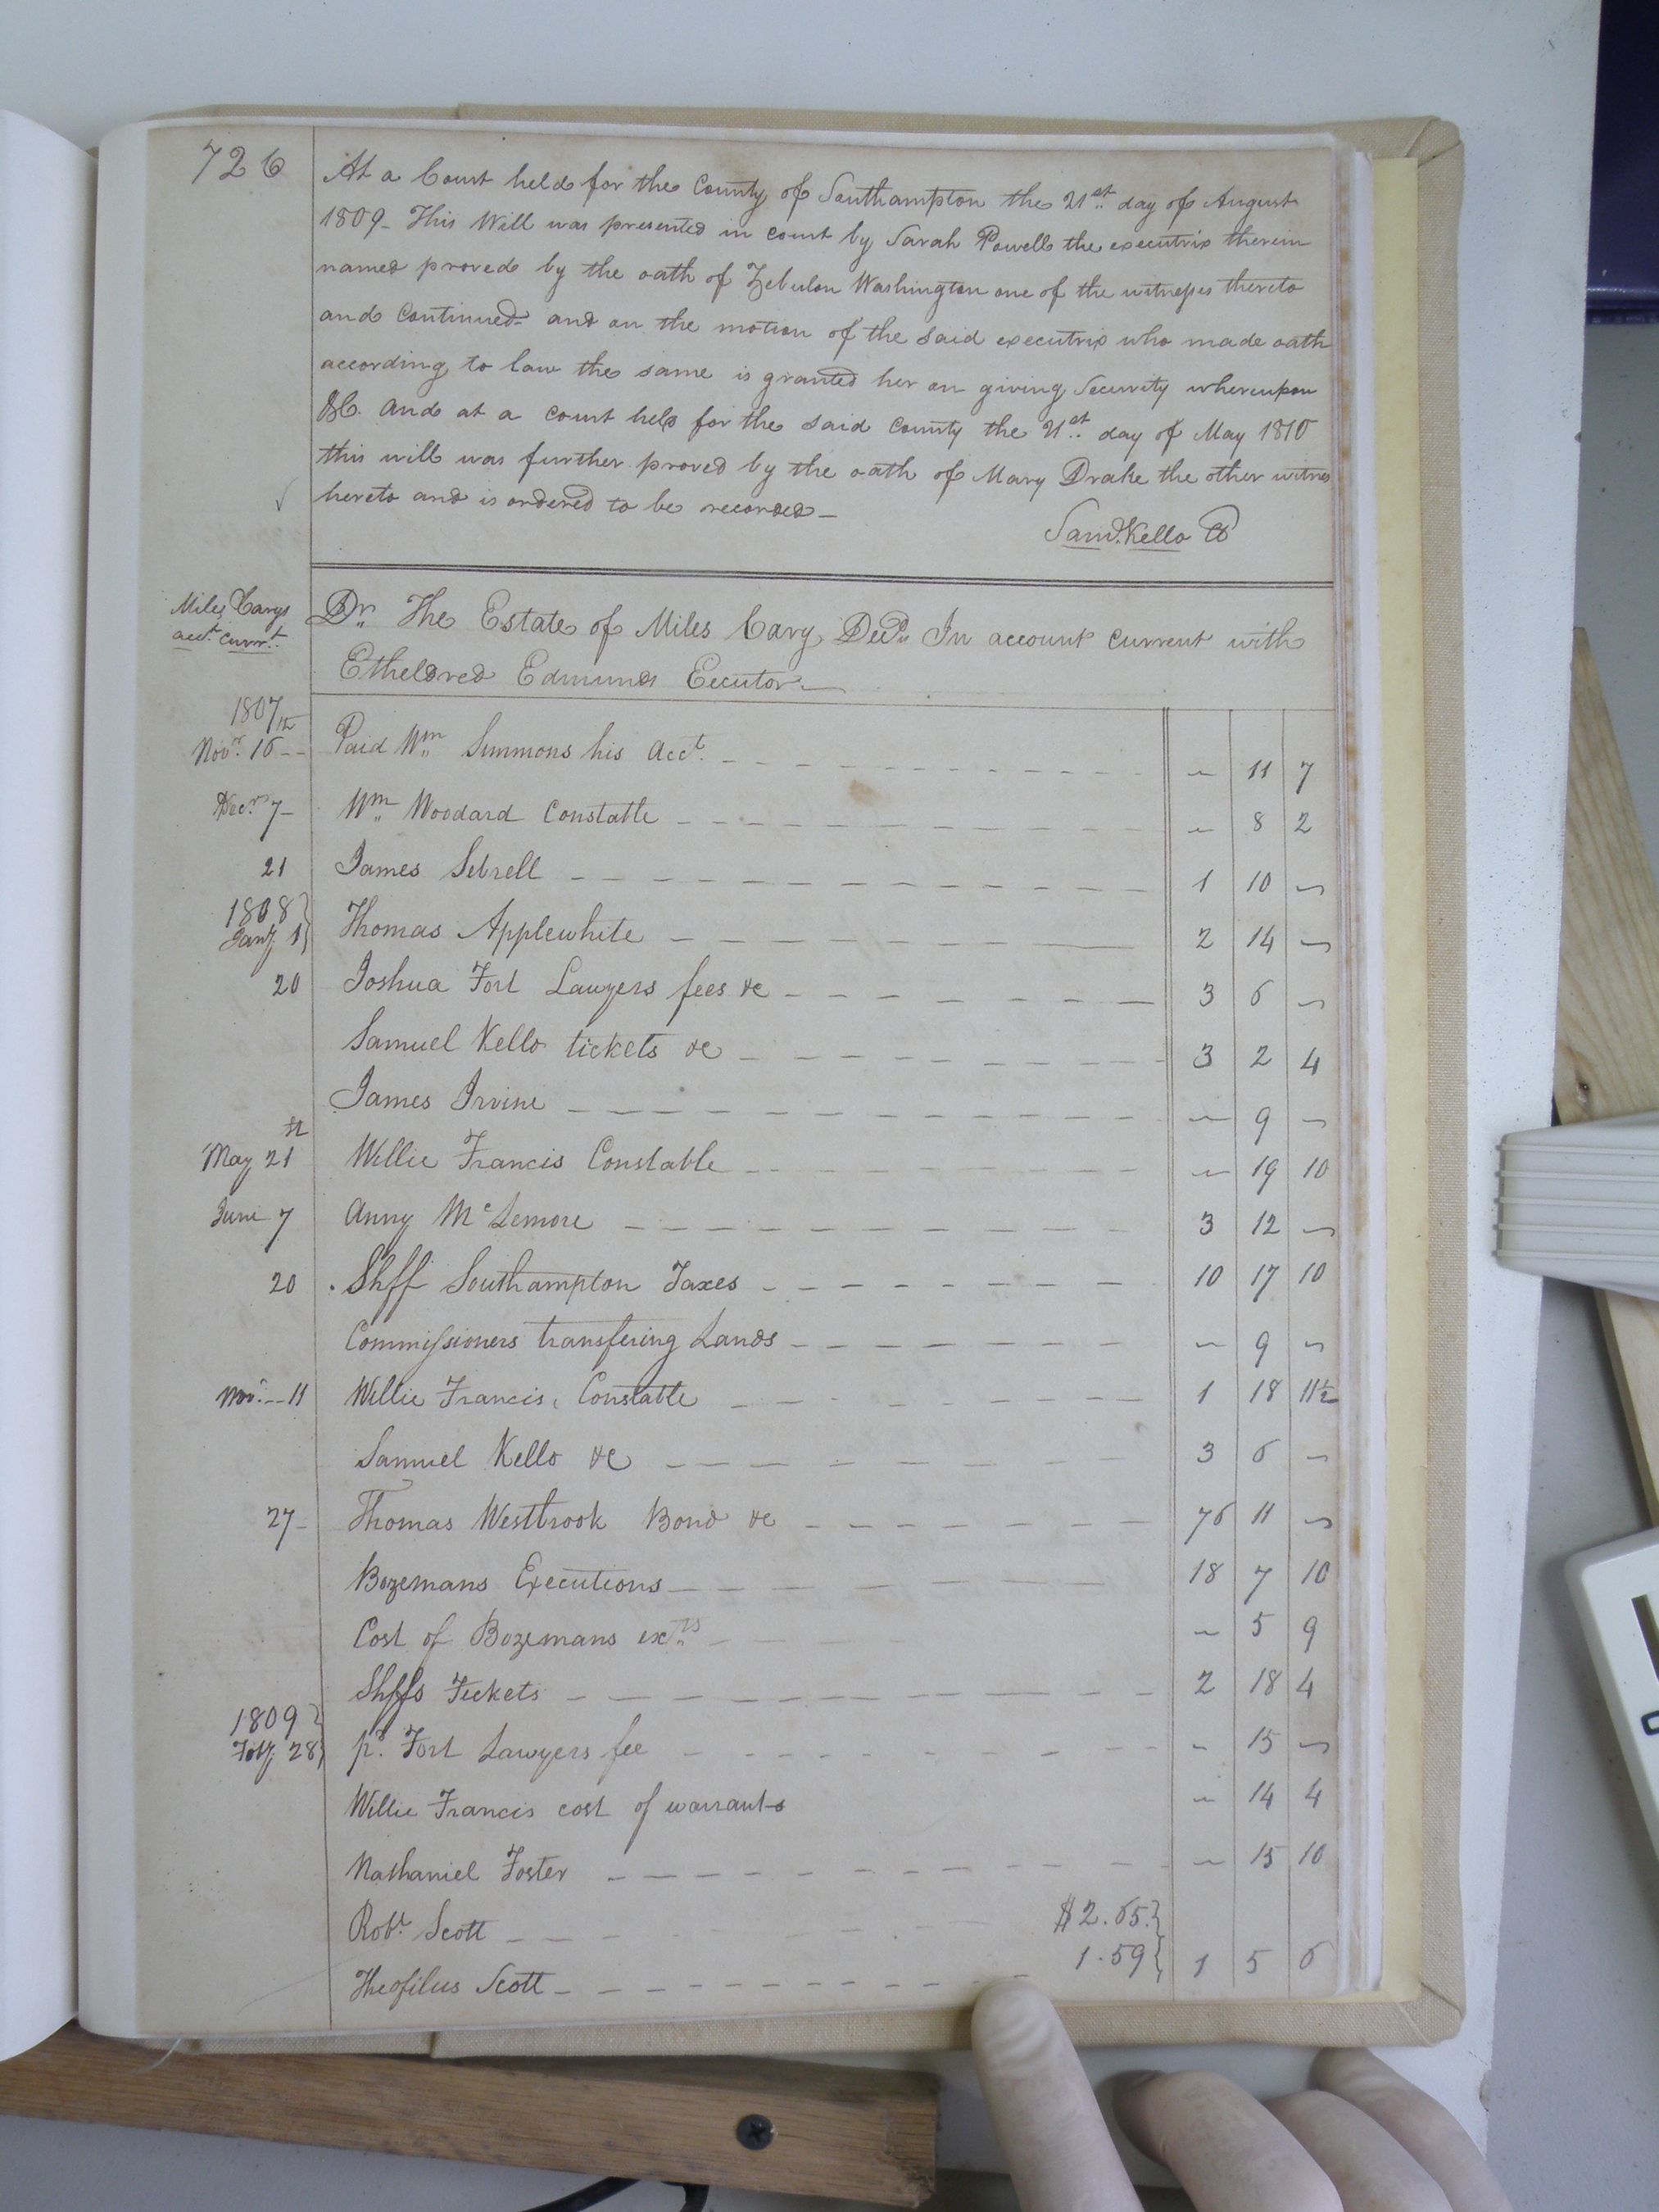 726
At a Court held for the County of Southampton the 21st day of August
1809 - This Will was presented in court by Sarah Powell the executrix therein
named proved by the oath of Zebulon Washington one of the witnesses thereto
and Continued - and on the motion of the said executrix who made oath
according to law the same is granted her on giving Security whereupon
&C. And at a Court held for the said County the 21st day of May 1810
this will was further proved by the oath of Mary Drake the other witness
hereto and is ordered to be recorded —
Saml. Kello CC
Miles Carys
acct. currt.
Dr. The Estate of Miles Cary Decd. In account current with
Etheldred Edmunds Eecutor
1807
Novr. 16th Paid Wm. Simmons his acct. ~ 11 7
Decr. 7 Wm. Woodard Constable ~ 8 2
21 James Sebrell 1 10 ~
1808
Jany. 1 Thomas Applewhite 2 14 ~
20 Joshua Fort Lawyers fees &c 3 6 ~
Samuel Kello tickets &c 3 2 4
James Irvine ~ 9 ~
May 21st Willie Francis Constable ~ 19 10
June 7 Anny McLemore 3 12 ~
20 Shff Southampton Taxes 10 17 10
Commissioners transfering Lands ~ 9 ~
Novr. 11 Willie Francis, Constable 1 18 11½
Samuel Kello &c 3 6 ~
27 Thomas Westbrook Bond &c 76 11 ~
Bozemans Executions 18 7 10
Cost of Bozemans exns ~ 5 9
Shffs Tickets 2 18 4
1809
Feby. 28 pd. Fort Lawyers fee ~ 15 ~
Willie Francis cost of warrants ~ 14 4
Nathaniel Foster ~ 15 10
Robt. Scott $2.65
Theofilus Scott 1.59 1 5 6